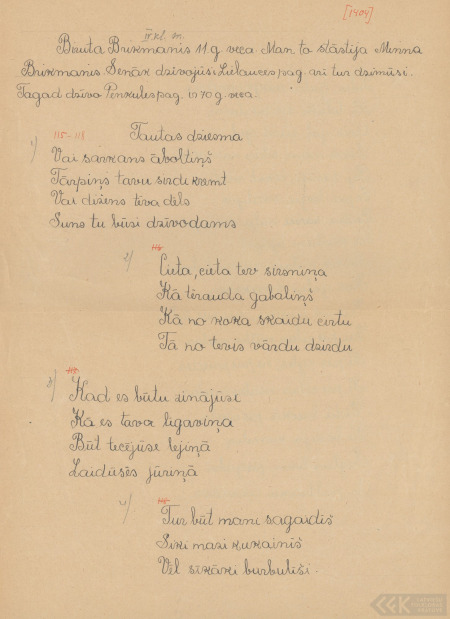 [1404]
IV. kl. sk.
Biruta Brikmanis 11 g. veca. Man to stāstīja Minna
Brikmanis. Senāk dzīvojusi Lielauces pag. arī tur dzimusi.
Tagad dzīvo Penkules pag. ir 70 g. veca.
115-118
Tautas dziesma
1) Vai sārkans āboltiņš
Tārpiņš tavu sirdi kremt
Vai dižens tēva dēls
Suns tu būsi dzīvodams
2) Cieta, cieta tev sirsniņa
Kā tērauda gabaliņš
Kā no koka skaidu cirtu
Tā no tevis vārdu dzirdu
3) Kad es būtu zinājuse
Kā es tava līgaviņa
Būt tecējuse lejiņā
Laidusēs jūriņā
4) Tur būt mani sagaidīš
Siki mazi kukainīš
Vēl sīkāki burbulīši.